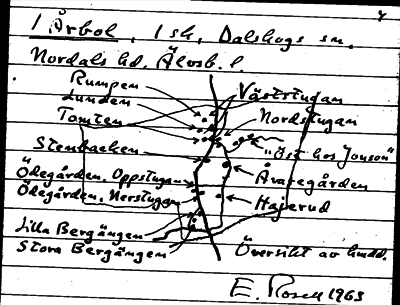 1 Årbol, 1 sk, Dalskogs sn,
Nordals hd. Älvsb. l.
Rumpen
Lunden
Tomten
Stenbacken
Ödegården, Oppstugan
Ödegården, Nerstugan
Lilla Bergängen
Stora Bergängen
Väststugan
Nordstugan
"Öst hos Jonson"
Åvaregården
Hajerud
Översikt av hmdd.
E. Rosell 1963